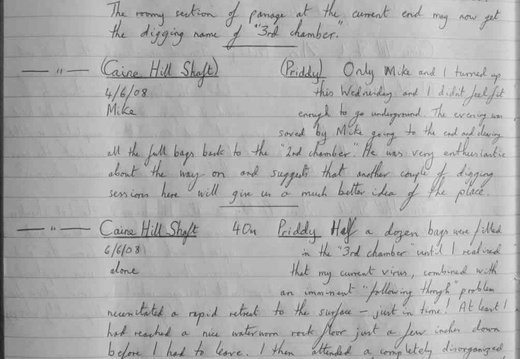 The roomy section of passage at the current end may now get
the digging name of "3rd chamber."
— " — (Caine Hill Shaft) (Priddy) Only Mike and I turned up
4/6/08 this Wednesday and I didn't feel fit
Mike enough to go underground. The evening was
saved by Mike going to the end and clearing
all the full bags back to the "2nd chamber". He was very enthusiastic
about the way on and suggests that another couple of digging
sessions here will give us a much better idea of the place.
— " — Caine Hill Shaft 40m Priddy Half a dozen bags were filled
6/6/08 in the "3rd chamber" until I realised
alone that my current virus, combined with
an imminent "following through" problem
necessitated a rapid retreat to the surface – just in time! At least I
had reached a nice waterworn rock floor just a few inches down
before I had to leave. I then attended a completely disorganised